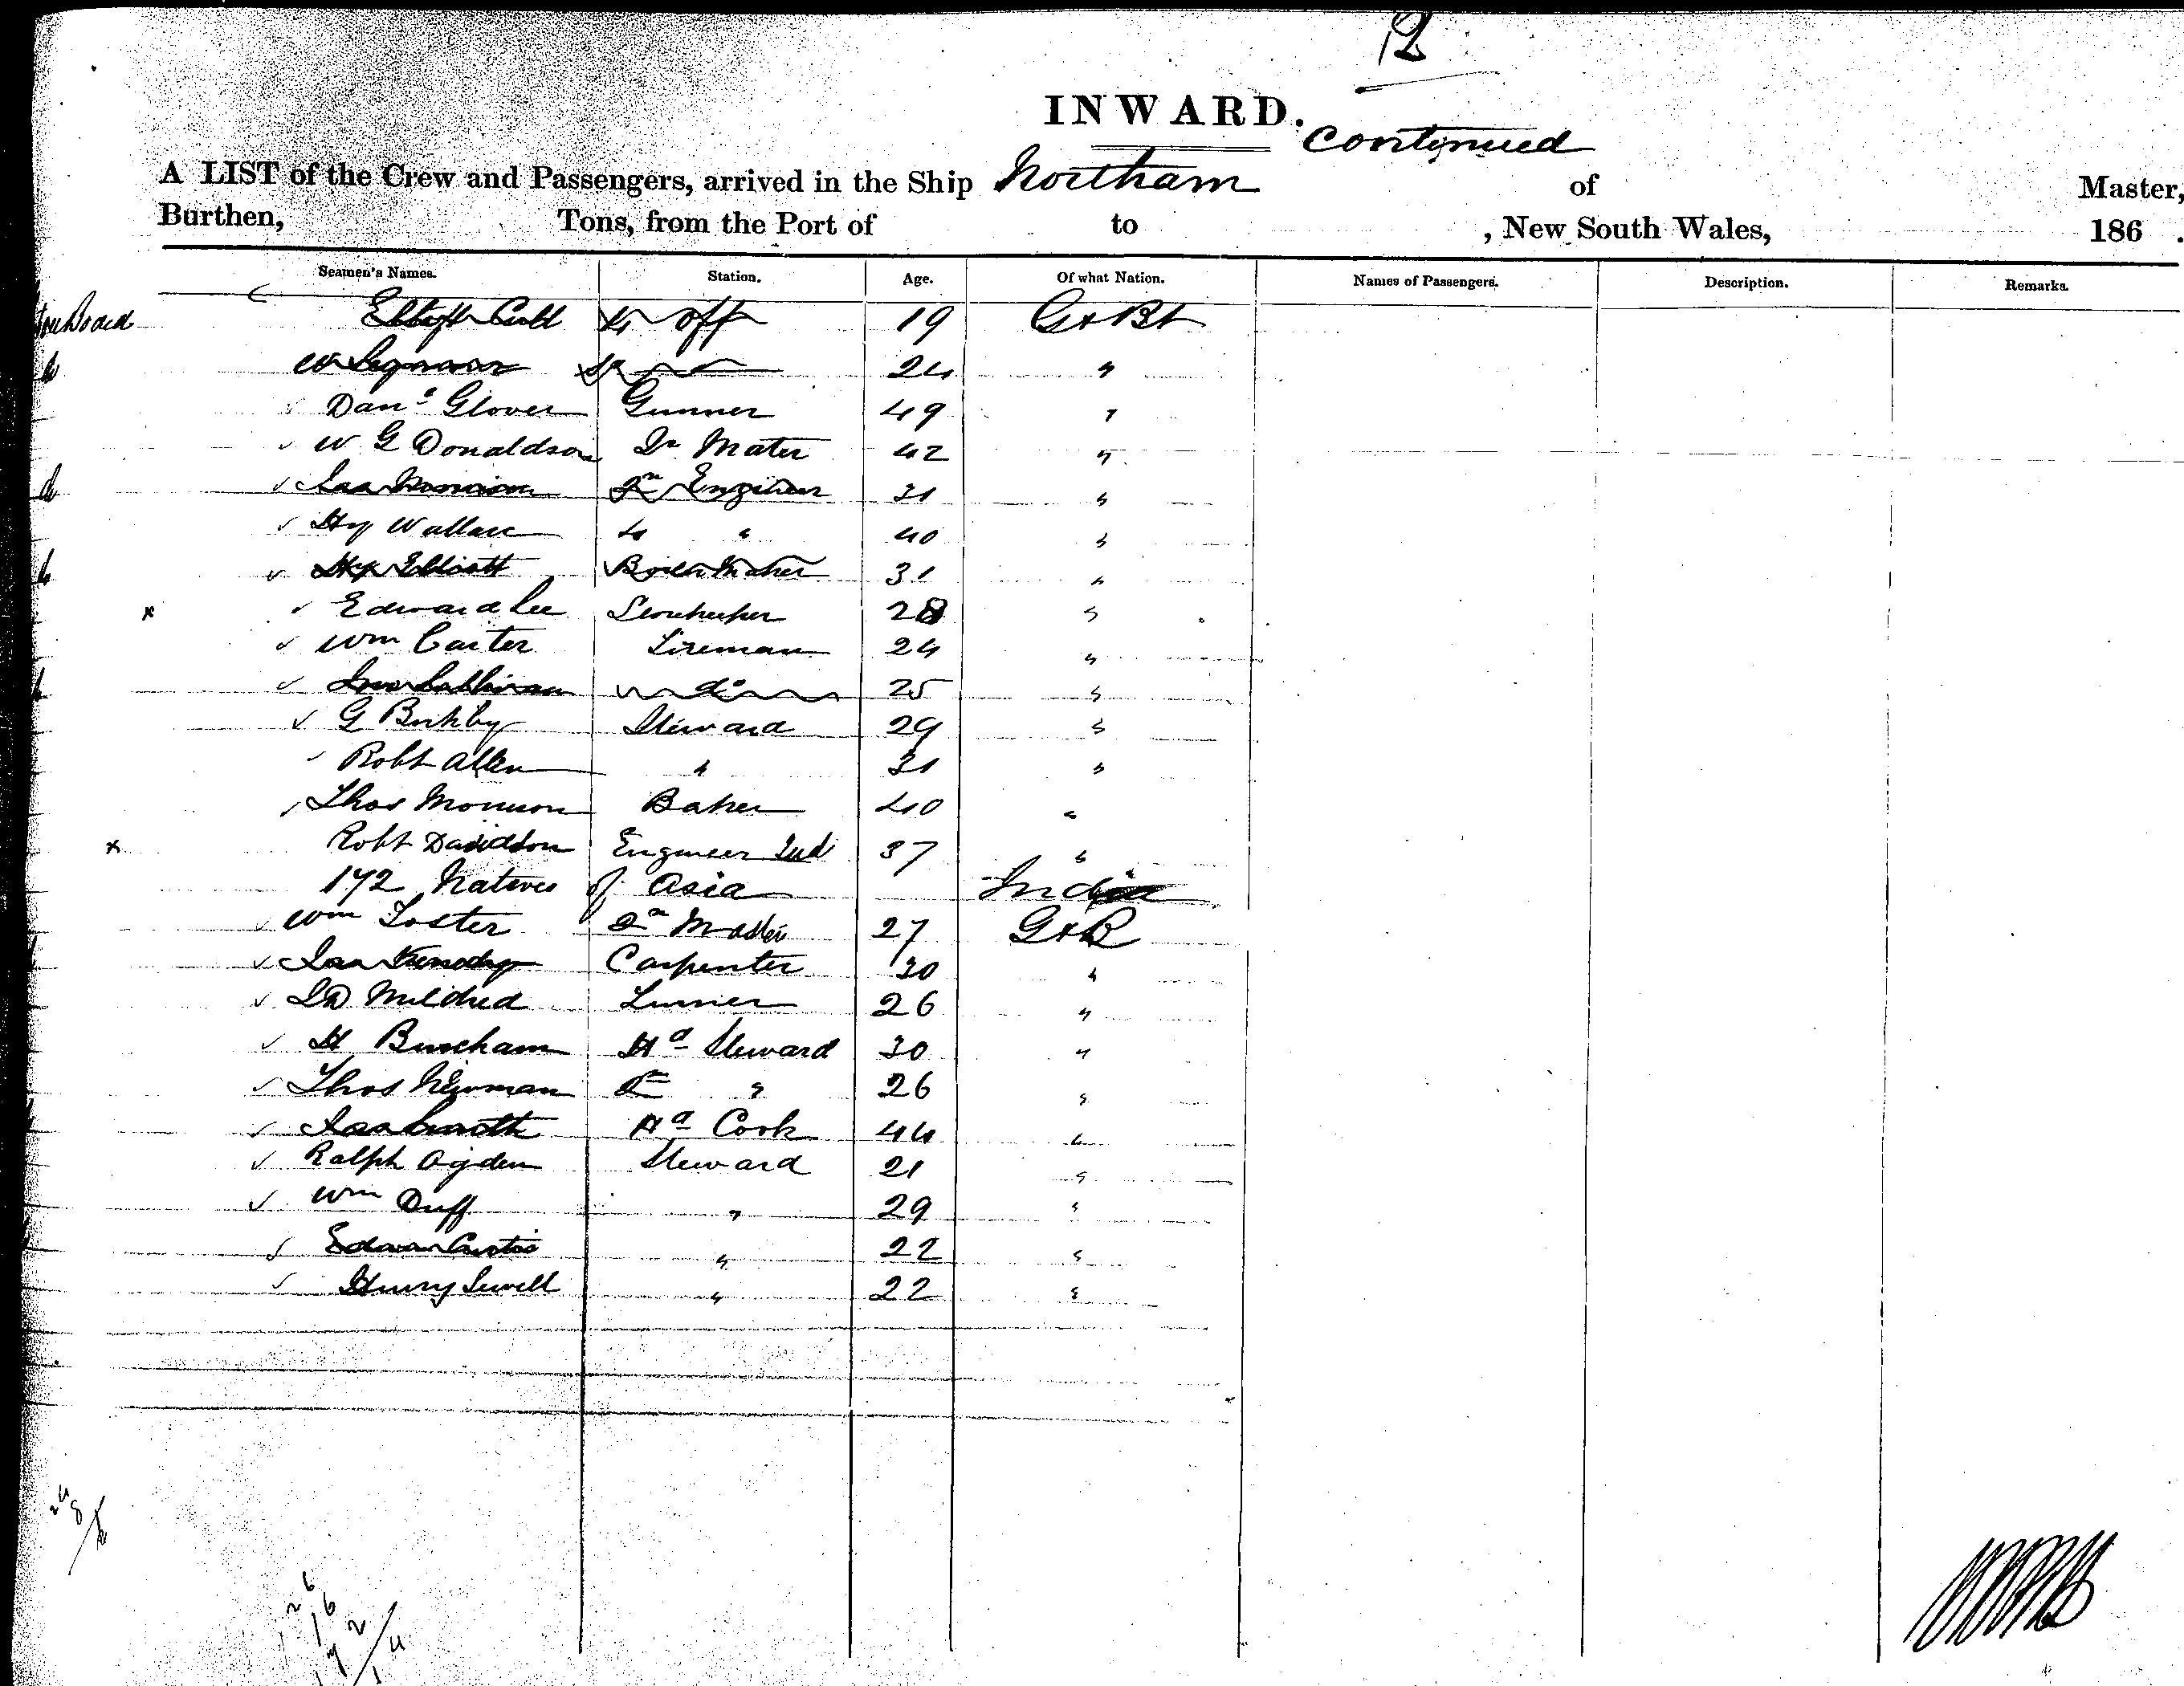 12
INWARD.
Continued
A LIST of the Crew and Passengers, arrived in the Ship Northam of Master,
Burthen, Tons, from the Port of to , New South Wales, 186 .
Seamen's Names. Station. Age. Of what Nation. Names of Passengers. Description. Remarks.
off 19 Gt Bt
W 24 "
Danl Glover Gunner 49 "
W G Donaldson Qr Mater 42 "
Jas Morrison Engineer 31 "
Hy Wallace 4 " 40 "
Hy Elliott Boiler Maker 31 "
x Edward Lee Storekeeper 28 "
Wm Carter Fireman 24 "
Jno Sullivan do 25 "
G Birkby Steward 29 "
Robt Allen " 31 "
Thos Morrison Baker 40 "
x Robt Davidson Engineer 2nd 37 "
172 Natives of Asia India
Wm Foster Qr Master 27 Gt B
Jas Kenedy Carpenter 30 "
Mildred 26 "
H Burcham Hd Steward 30 "
Thos Newman 2nd " 26 "
Jas Smith Hd Cook 44 "
Ralph Ogden Steward 21 "
Wm Duff " 29 "
Edwin Curtis " 22 "
Henry Sewell " 22 "